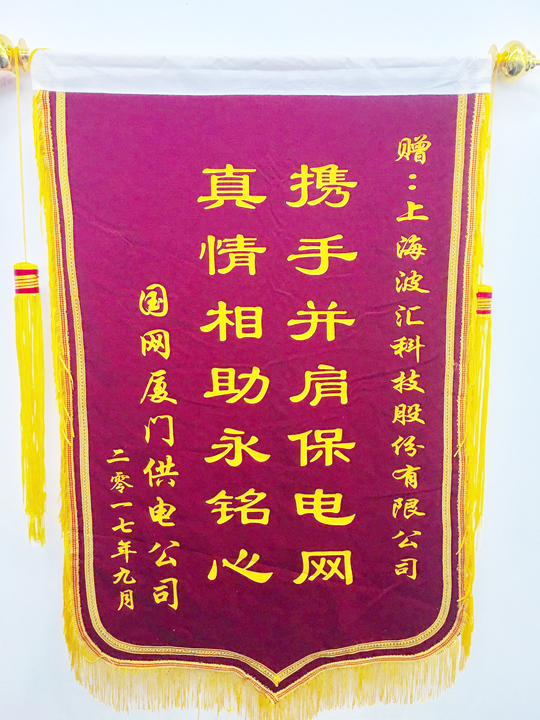 赠：上海波汇科技股份有限公司
携手并肩保电网
真情相助永铭心
国网厦门供电公司
二零一七年九月